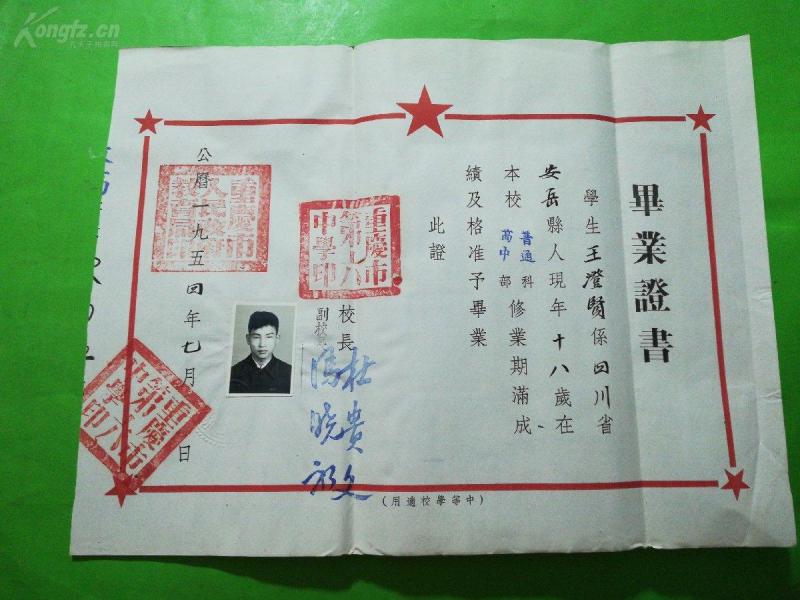 Kongfz.cn
孔夫子旧书网
畢業證書
學生王澄賢係四川省
安岳縣人現年十八歲在
本校普通科高中部修業期滿成
績及格准予畢業
此證
重慶市第八中學印
校長 杜貴文
副校長
公曆一九五四年七月 日
重慶市第八中學印
(中等學校適用)